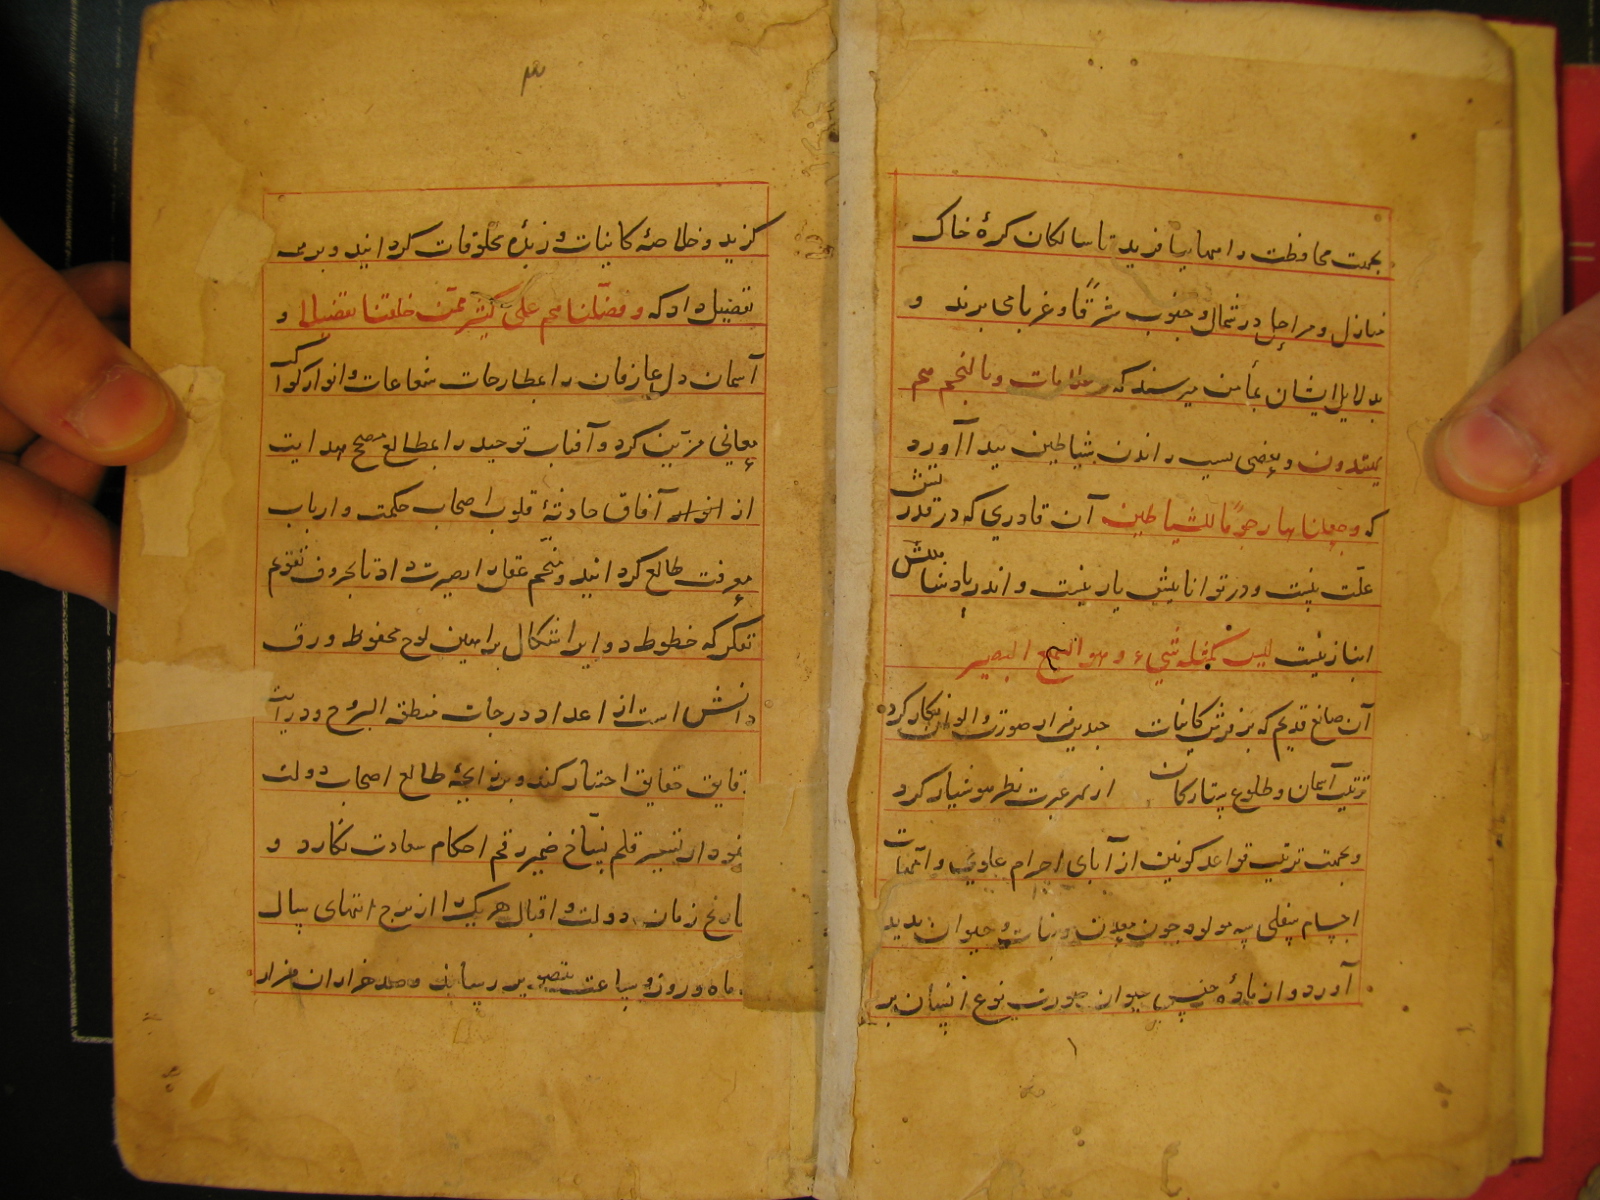 بجهت محافظت راهها بیافرید تا سالکان کرهٔ خاک
منازل و مراحل در شمال و جنوب شرقًا و غربا می برند و
بدلایل ایشان بمأمن میرسند که و علامات و بالنجم هم
یهتدون و بعضی بسبب راندن شیاطین پیدا آورد
که وجعلناها رجومًا للشیاطین آن قادری که در قدرتش
علّت نیست و در توانائیش یار نیست و اندر پادشاهیش
انباز نیست لیس کمثله شیء و هو السمیع البصیر
آن صانع قدیم که بر فرش کاینات چندین هزار صورت الوان نکار کرد
ترتیب آسمان و طلوع ستارکان از بهر عبرت نظر هوشیار کرد
و بجهت ترتیب قواعد کونین از آبای اجرام علوی و امّهات
اجسام سفلی سه مولود چون معدن و نبات و حیوان پدید
آورد و از مادهٔ جنس حیوان صورت نوع انسان بر
۱
۳
کزید و خلاصهٔ کاینات و زبدهٔ مخلوقات کردانید و بر همه
تفضیل داد که و فضّلناهم علی کثیر ممّن خلقنا تفضیلا و
آسمان دل عارفان را بمطارحات شعاعات و انوار کواکب
معانی مزیّن کرد و آفتاب توحید را بمطالع صبح هدایت
از انوار آفاق حادثهٔ قلوب اصحاب حکمت و ارباب
معرفت طالع کردانید و منجّم عقل را بصیرت داد تا بحروف تقویم
تفکر که خطوط دوایر اشکال براهین لوح محفوظ ورق
دانش است از اعداد درجات منطقة البروج و درایت
دقایق حقایق اختیار کند و بر زایجهٔ طالع اصحاب دولت
نمودار تسییر قلم نسّاخ ضمیر رقم احکام سعادت نکارد و
تاریخ زمان دولت و اقبال هر یک را از برج انتهای سال
ماه و روز و ساعت بتصویر رساند و صد هزاران هزار